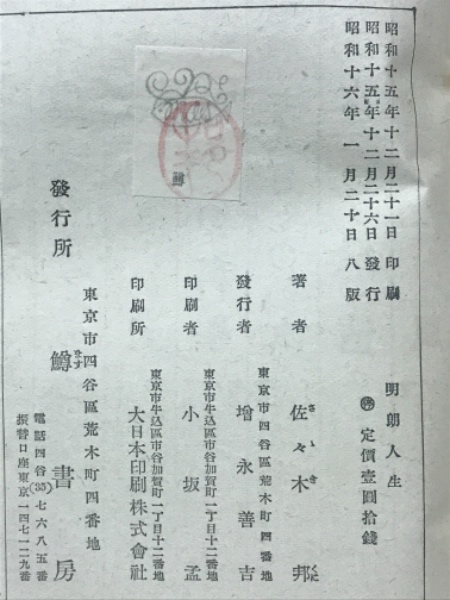 昭和十五年十二月二十一日 印刷
昭和十五年十二月二十六日 發行
昭和十六年一月二十日 八版
明朗人生
定價壹圓拾錢
著者 佐々木邦
東京市四谷區荒木町四番地
發行者 增永善吉
東京市牛込區市谷加賀町一丁目十二番地
印刷者 小坂孟
東京市牛込區市谷加賀町一丁目十二番地
印刷所 大日本印刷株式會社
東京市四谷區荒木町四番地
發行所 鱒書房
電話四谷(35)七六八五番
振替口座東京一四七一二九番